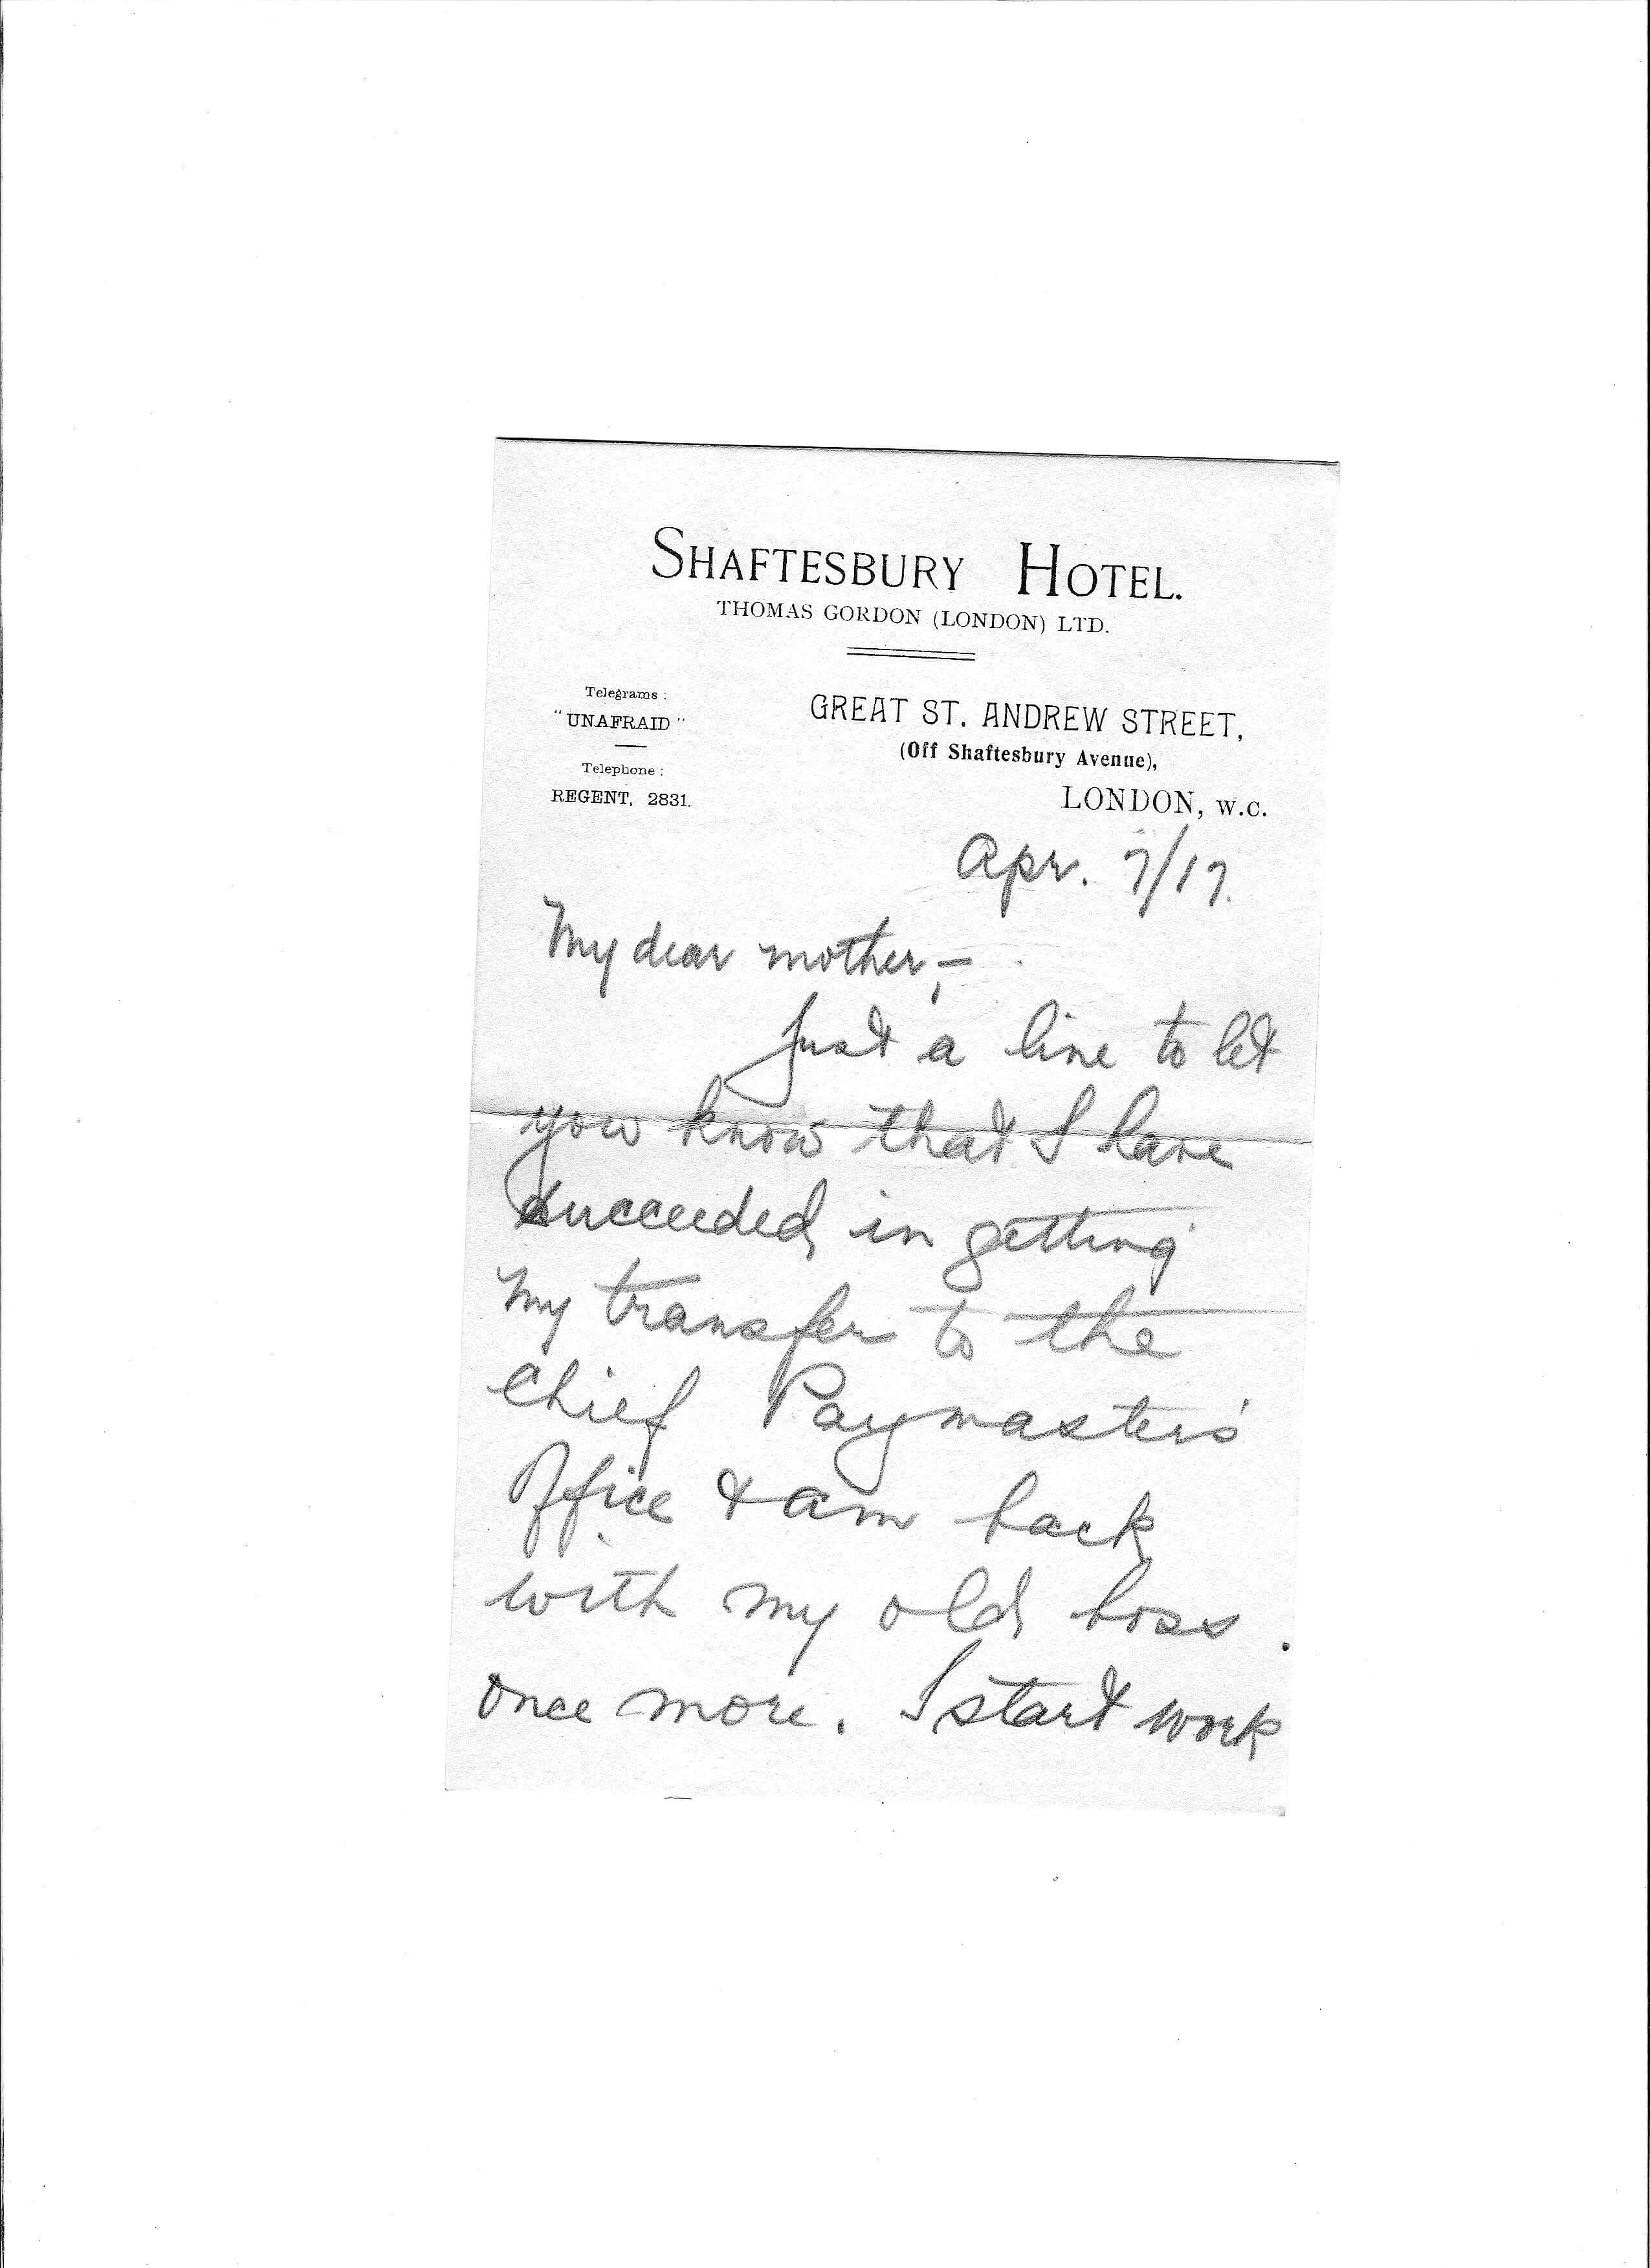 SHAFTESBURY HOTEL.
THOMAS GORDON (LONDON) LTD.
Telegrams :
"UNAFRAID"
Telephone :
REGENT, 2831.
GREAT ST. ANDREW STREET,
(Off Shaftesbury Avenue),
LONDON, W.C.
Apr. 7/17.
My dear mother,—
Just a line to let
you know that I have
succeeded in getting
my transfer to the
Chief Paymaster's
Office & am back
with my old boss
once more. I start work